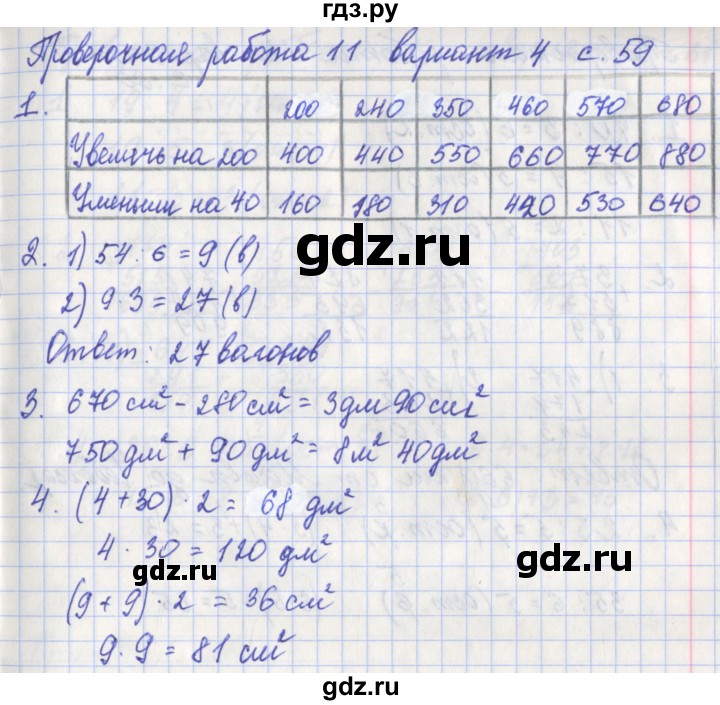 гдз.ру
Проверочная работа 11 вариант 4 с. 59
1. 200 240 350 460 570 680
Увеличь на 200 400 440 550 660 770 880
Уменьши на 40 160 180 310 420 530 640
2. 1) 54 : 6 = 9 (в)
2) 9 · 3 = 27 (в)
gdz.ru gdz.ru
Ответ: 27 вагонов
3. 670 см² - 280 см² = 3 дм 90 см²
750 дм² + 90 дм² = 8 м² 40 дм²
4. (4 + 30) · 2 = 68 дм²
4 · 30 = 120 дм²
gdz.ru gdz.ru
(9 + 9) · 2 = 36 см²
9 · 9 = 81 см²
gdz.ru